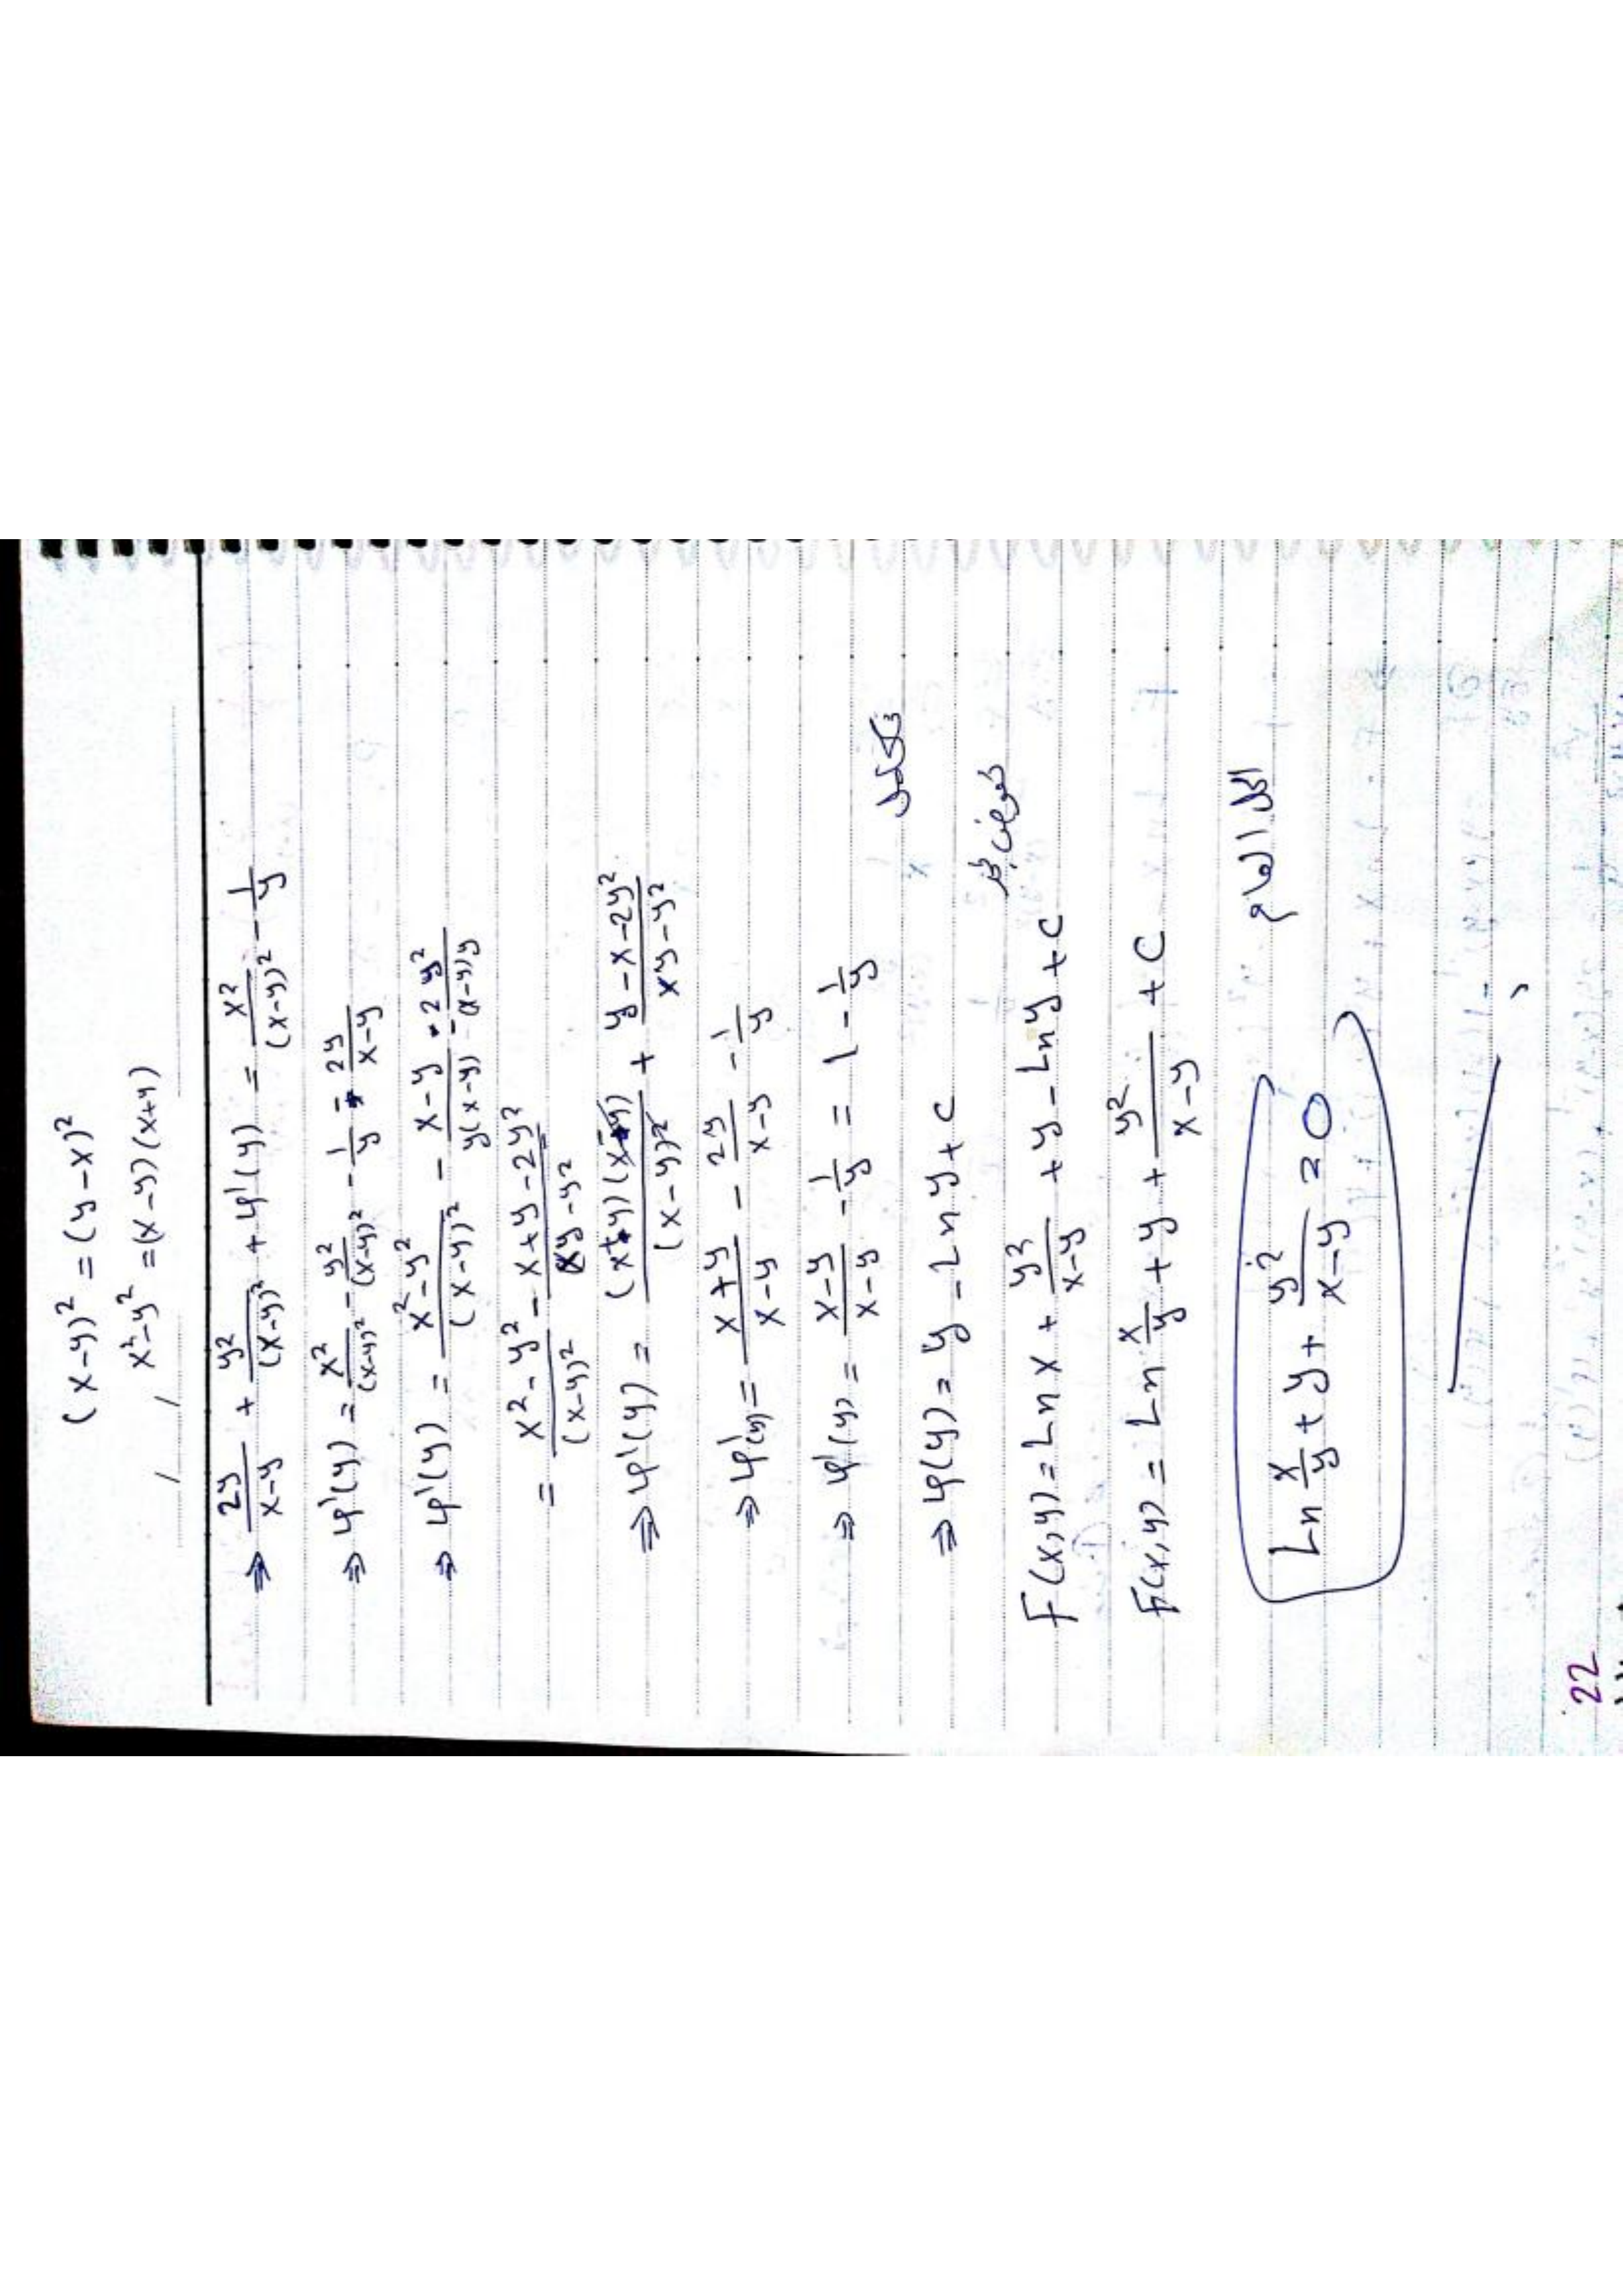 (x-y)² = (y-x)²
x²-y² = (x-y)(x+y)
/ /
⇒ 2y/(x-y) + y²/(x-y)² + φ'(y) = x²/(x-y)² - 1/y
⇒ φ'(y) = x²/(x-y)² - y²/(x-y)² - 1/y - 2y/(x-y)
⇒ φ'(y) = (x²-y²)/(x-y)² - (x-y)/(y(x-y)) - 2y²/((x-y)y)
= (x²-y²)/(x-y)² - (x+y-2y²)/(xy-y²)
⇒ φ'(y) = (x+y)(x-y)/(x-y)² + (y-x-2y²)/(xy-y²)
⇒ φ'(y) = (x+y)/(x-y) - 2y/(x-y) - 1/y
⇒ φ'(y) = (x-y)/(x-y) - 1/y = 1 - 1/y
نكامل
⇒ φ(y) = y - Ln y + C
نعوض بـ
F(x,y) = Ln x + y²/(x-y) + y - Ln y + C
F(x,y) = Ln x/y + y + y²/(x-y) + C
الحل العام
Ln x/y + y + y²/(x-y) = 0
22